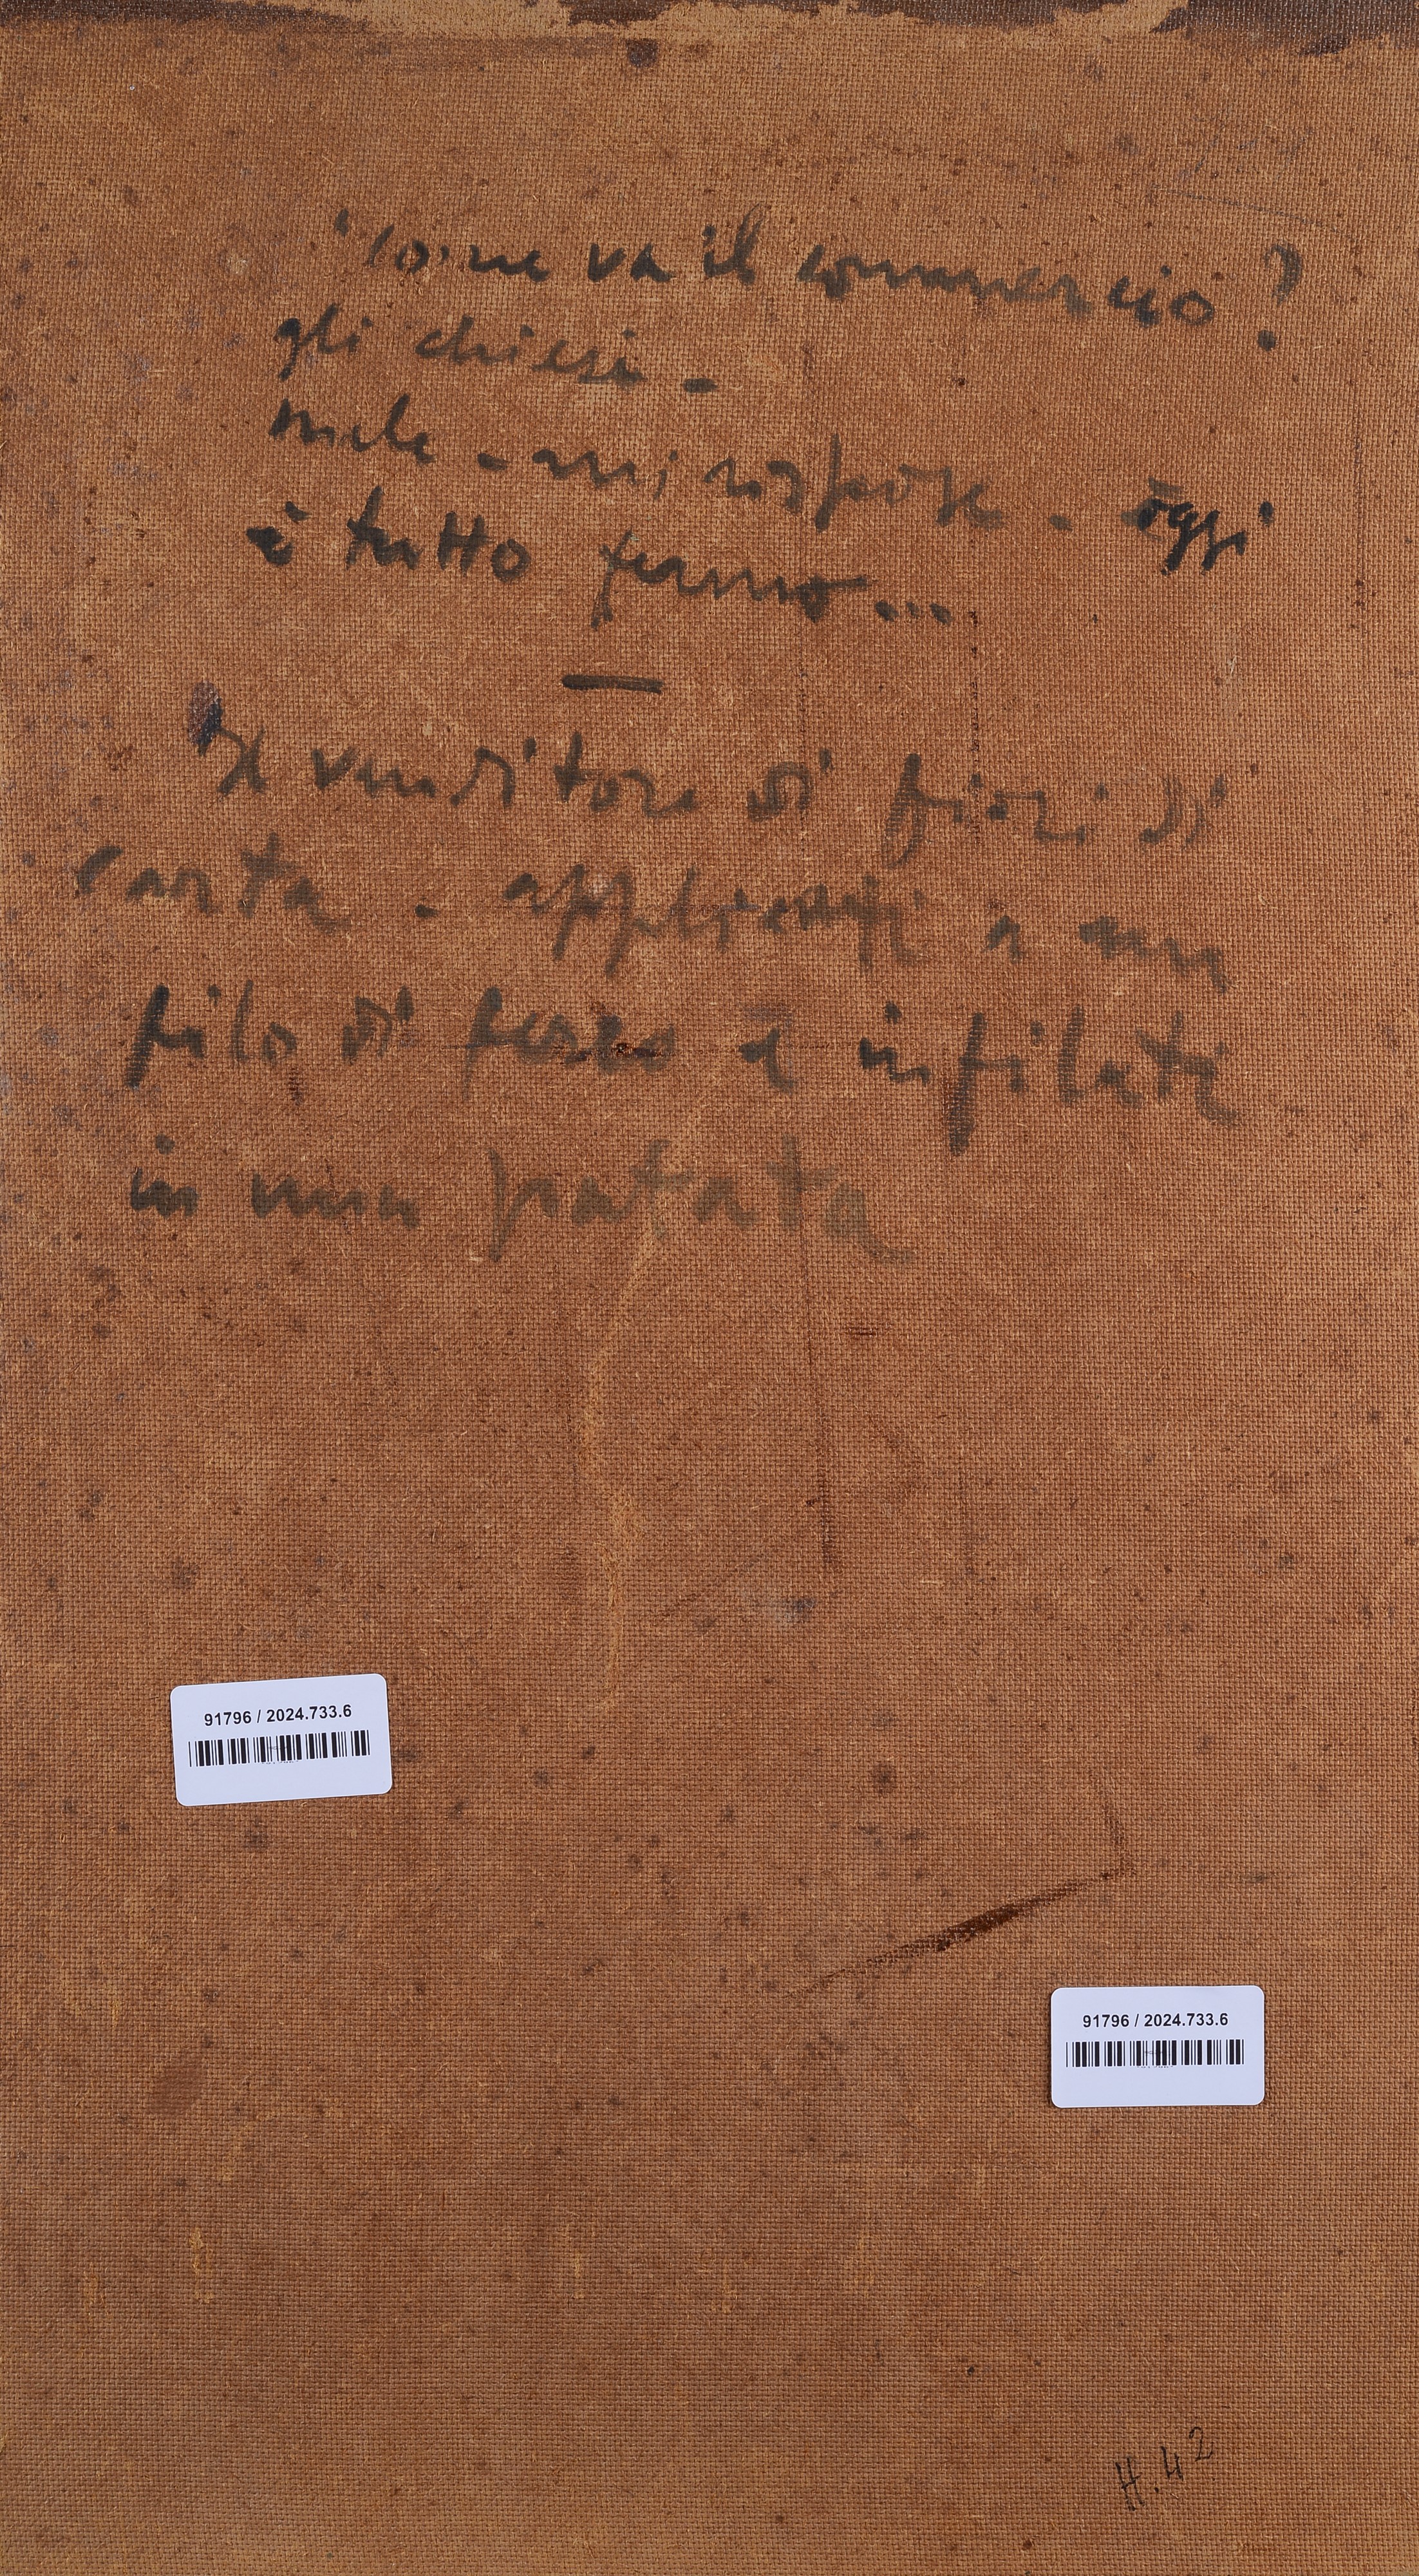 "Come va il commercio?
gli chiesi -
male - mi rispose - oggi
è tutto fermo...
Il venditore di fiori di
carta - applicati a un
filo di ferro e infilati
in una patata
91796 / 2024.733.6
91796 / 2024.733.6
H.42